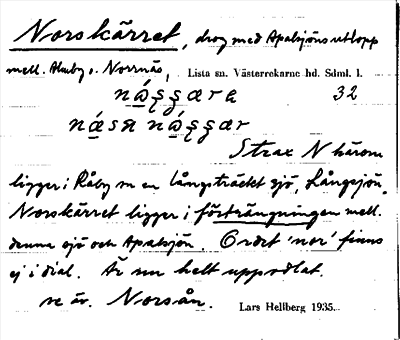 Norskärret, drog med Apalsjöns utlopp
mell. Åkerby o. Norrnäs, Lista sn. Västerrekarne hd. Sdml. l.
32
Strax N härom
ligger i Råby sn en långsträckt sjö, Långsjön.
Norskärret ligger i förträngningen mell.
denna sjö och Apalsjön. Ordet 'nor' finns
ej i dial. Är nu helt uppodlat.
se äv. Norsån. Lars Hellberg 1935.